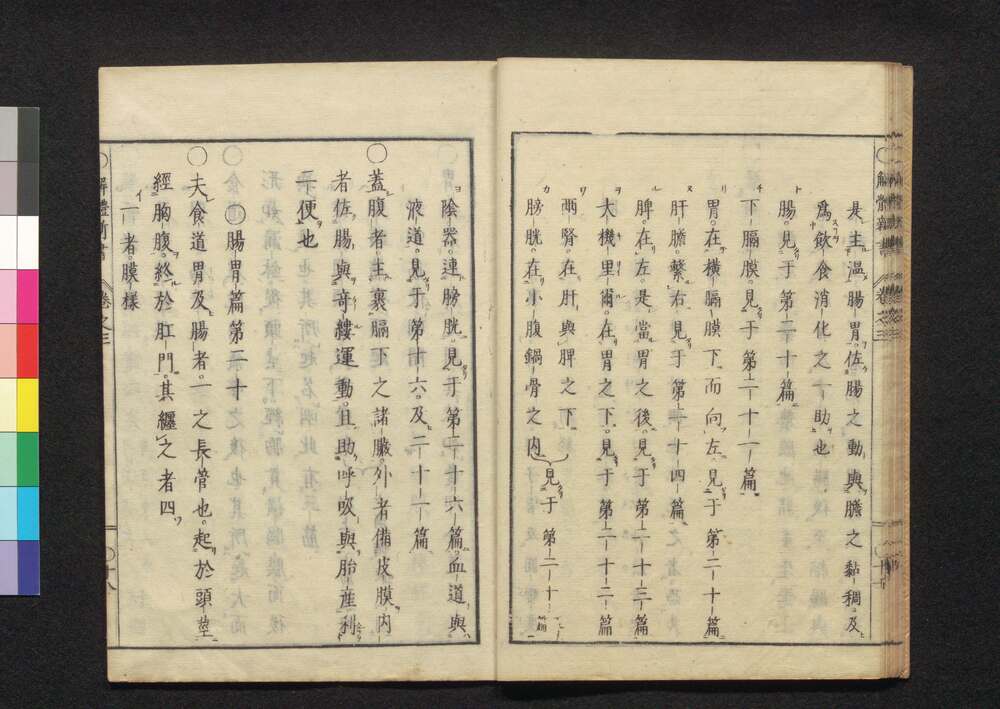 是主温腸胃佐腸之動與膽之黏稠及
爲飲食消化之一助也
ト腸見于第二十篇
チ下膈膜見于第二十一篇
リ胃在横膈膜下而向左見于第二十篇
ヌ肝膽繫右見于第二十四篇
ル脾在左是當胃之後見于第二十三篇
ヲ大機里爾在胃之下見于第二十二篇
ワ兩腎在肝與脾之下
カ膀胱在小腹鍋骨之内
見于第二十
篇
ヨ陰器連膀胱見于第二十六篇血道與
液道見于第十六及二十一篇
○蓋腹者主裹膈下之諸臓外者備皮膜内
者佐腸與奇縷運動且助呼吸與胎産利
便也
○腸胃篇第二十
○夫食道胃及腸者一之長管也起於頭垫
經胸腹終於肛門其纏之者四
イ一者膜樣
解體新書
卷之三
○十八